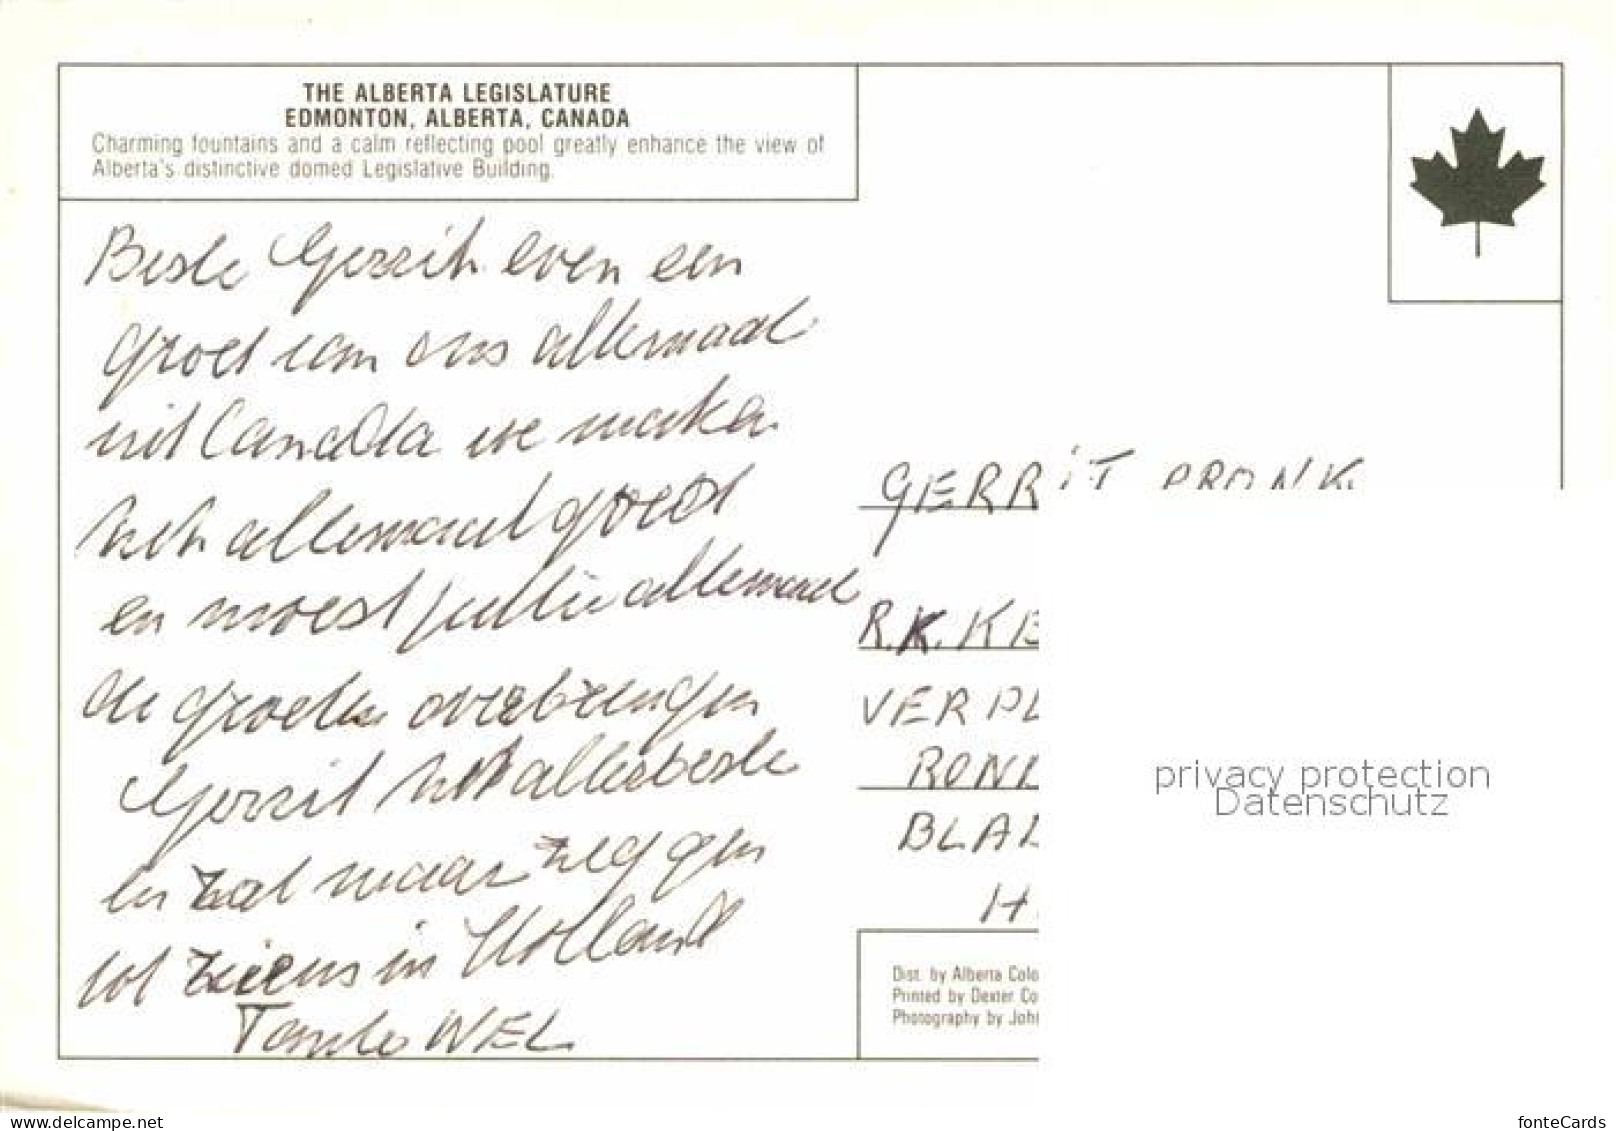 THE ALBERTA LEGISLATURE
EDMONTON, ALBERTA, CANADA
Charming fountains and a calm reflecting pool greatly enhance the view of
Alberta's distinctive domed Legislative Building.
Beste Gerrit even een
groet van ons allemaal
uit Canada we maken
het allemaal goed
en moest jullie allemaal
de groeten overbrengen
Gerrit het allerbeste
en zal maar zeggen
tot ziens in Holland
Tante WEL
GERRIT PRONK
R.K. KE
VER PL
ROND
BLA
H
Dist. by Alberta Colo
Printed by Dexter Co
Photography by John
privacy protection
Datenschutz
www.delcampe.net
fonteCards